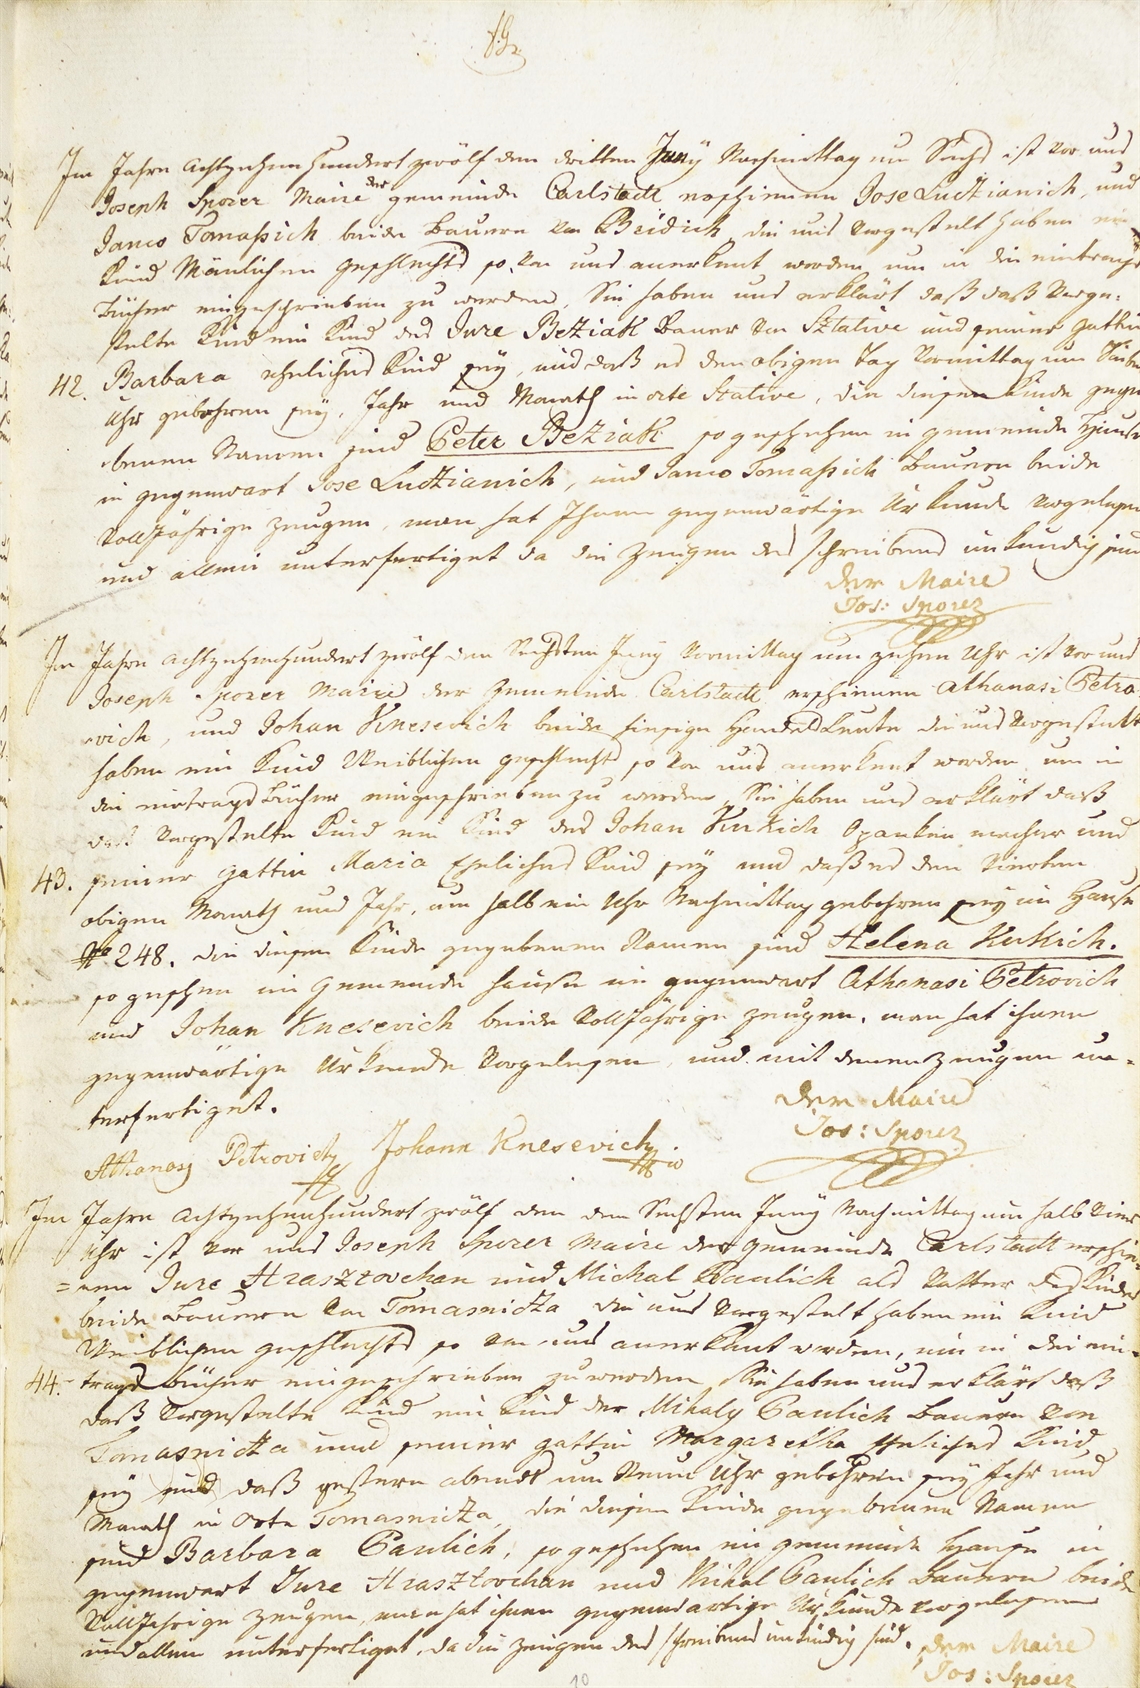 Im Jahre Achtzehenhundert zwölf den dritten Juny Nachmittag um Sechs ist vor uns
Joseph Sporer Maire der gemeinde Carlstadt erschienen Jose Ludzianich, und
Janco Tomassich beide Bauern von Bridich die uns Vorgestelt haben ein
Kind Mänlichen geschlechts so von uns anerkent worden um in die eintrags
Bücher eingeschrieben zu werden, Sie haben uns erklärt daß daß Vorge-
stelte Kind ein Kind des Jure Beziak Bauer von Sztative und seiner gattin
42. Barbara ehelichs Kind sey, und daß es den obigen Tag Vormittag um Sieben
Uhr gebohren sey, Jahr und Monath in orte Stative, die diesen Kinde gege-
benen Namen sind Peter Beziak so geschehen in gemeinde Hause
in gegenwart Jose Ludzianich, und Janco Tomassich Bauern beide
Volljährige Zeugen, man hat Ihnen gegenwärtige Urkunde Vorgelesen
und allein unterfertiget da die Zeugen des schreibens unkundig sind
der Maire
Jos: Sporer
Im Jahre Achtzehenhundert zwölf den Sechsten Juny Vormittag um zehen Uhr ist Vor uns
Joseph Sporer Maire der Gemeinde Carlstadt erschienen Athanasi Petro-
vich, und Johan Knesevich beide hiesige Handels Leute die uns Vorgestelt
haben ein Kind Weiblichen geschlechts so von uns anerkent worden um in
die eintrags Bücher eingeschrieben zu werden, Sie haben uns erklärt daß
daß Vorgestelte Kind ein Kind des Johan Kukich Opanken macher und
43. seiner gattin Maria Ehelichs Kind sey und daß es den Vierten
obigen Monath und Jahr, um halb ein Uhr Nachmittag gebohren sey im Hause
No 248. die diesen Kinde gegebenen Namen sind Helena Kukich.
so geschen im Gemeinde hause in gegenwart Athanasi Petrovich
und Johan Knesevich beide Volljährige Zeugen, man hat ihnen
gegenwärtige Urkunde Vorgelesen, und mit denen Zeugen un-
terfertiget.
der Maire
Jos: Sporer
Athanasy Petrovich Johann Knesevich
Im Jahre Achtzehenhundert zwölf den dem Sechsten Juny Nachmittag um halb Vier
Uhr ist Vor uns Joseph Sporer Maire der gemeinde Carlstadt erschie-
=nen Jure Hrasztovchan und Michal Paulich als Vatter des Kindes
beide Bauern von Tomasnicza die uns Vorgestelt haben ein Kind
Weiblichen geschlechts so von uns anerkant worden, um in die ein-
44. trags bücher eingeschrieben zu werden Sie haben uns erklärt daß
daß Vorgestelte Kind ein Kind der Mihaly Paulich Bauern von
Tomasnicza und seiner gattin Margaretha Ehelichs Kind
sey und daß gestern abends um Neun Uhr gebohren sey Jahr und
Monath in Orte Tomasnicza, die diesen Kinde gegebenen Namen
sind Barbara Paulich, so geschehen im gemeinde Hause in
gegenwart Jure Hrasztovchan und Mihal Paulich Bauern beide
Volljährige Zeugen, man hat ihnen gegenwärtige Urkunde Vorgelesen
und allein unterfertiget, da die Zeugen des schreibens unkündig sind.
der Maire
Jos: Sporer
10